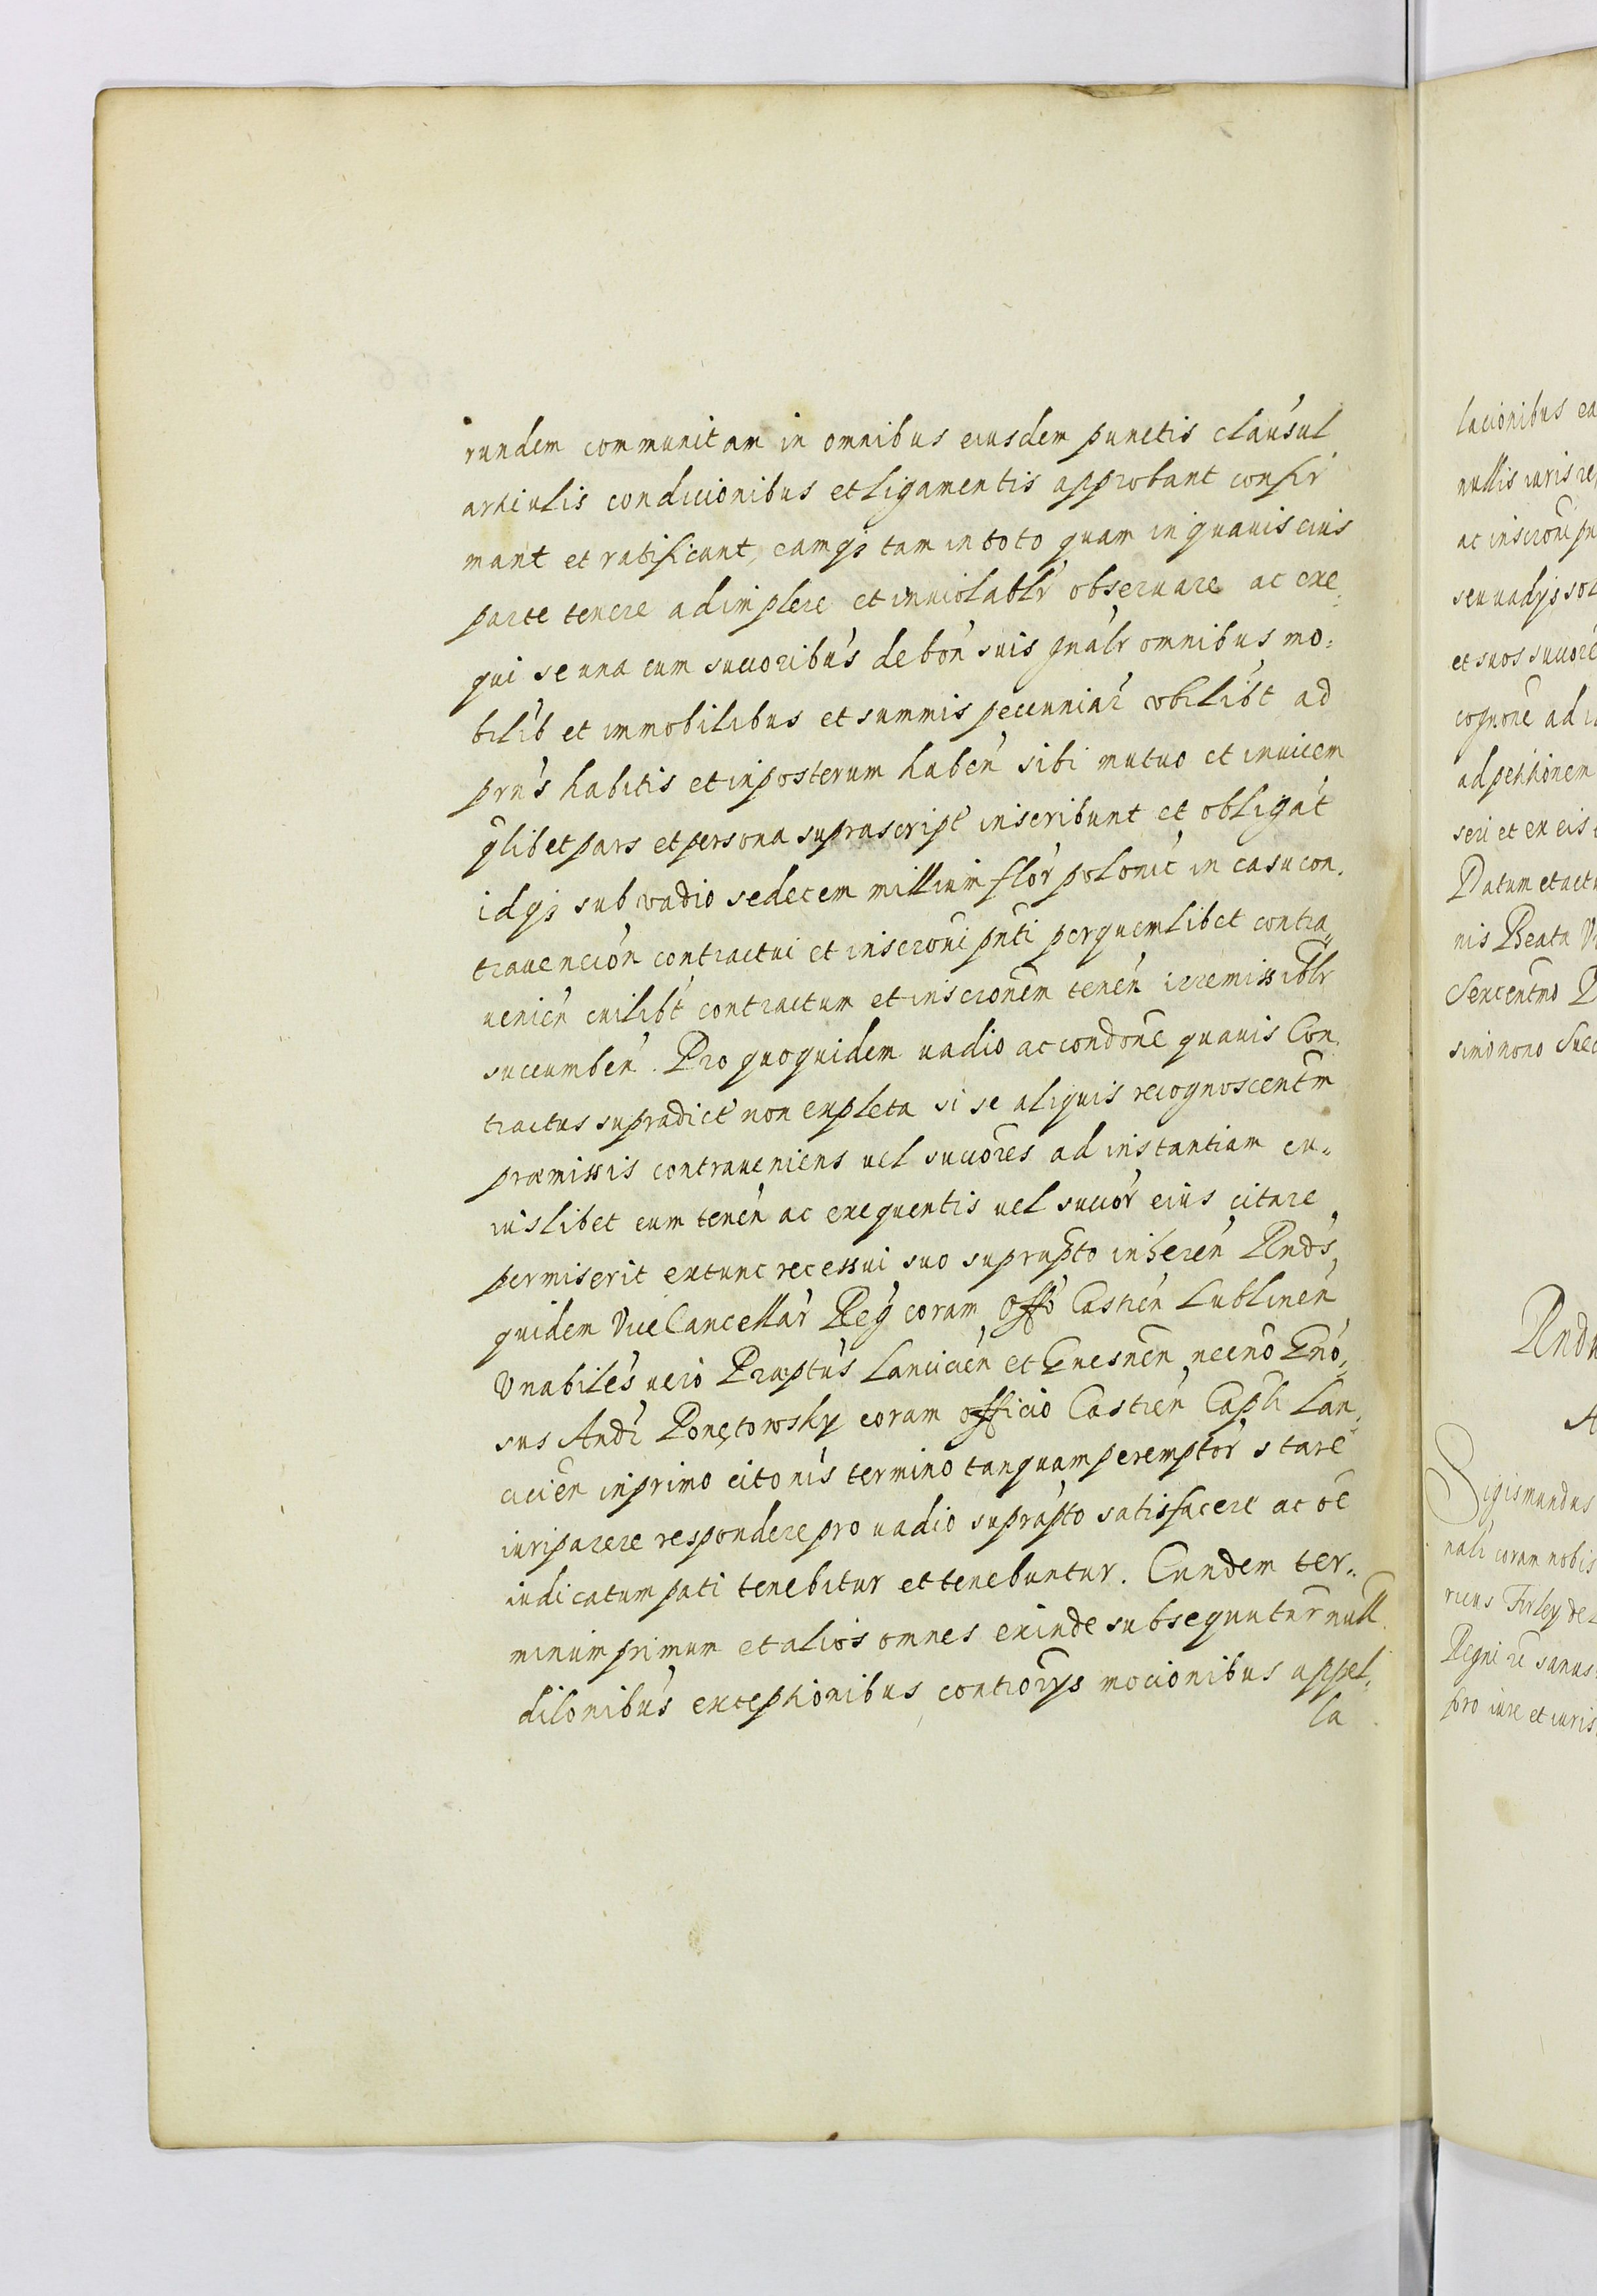 rundem communitam in omnibus eiusdem punctis clausul
articulis condicionibus et ligamentis approbant confir
mant et ratificant, eamqz tam in toto quam in quauis eius
parte tenere adimplere et inuiolablr obseruare ac exe-
qui se una cum succoribus de bon suis gnalr omnibus mo:
bilib et immobilibus et summis pecuniar vbilibt ad
prns habitis et inposterum haben sibi mutuo et inuicem
qlibet pars et persona suprascript inscribunt et obligat
idqz sub vadio sedecem millium flor polonic in casu con.
trauencion contractui et inscroni pnti per quemlibet contra„
uenien cuilibt contractum et inscronem tenen irremissiblr
succumben. Pro quoquidem uadio ac condone quauis Con
tractus supradict non expleta si se aliquis recognoscentm
præmissis contraueniens uel succores ad instantiam cu„
iuslibet eum tenen ac exequentis uel succor eius citare
permiserit extunc recessui suo suprapto inheren Rnds
quidem ViceCancellar Reg coram Offo Castren Lublinen
Vnabiles uero Præptus Lancicien et Gnesnen necno Gno„
sus Andr Ponętowsky coram officio Castren Capli Lan„
cicien in primo citonis termino tanquam peremptor stare
iuri parere respondere pro uadio suprapto satisfacere ac oe
iudicatum pati tenebitur et tenebuntur. Eundem ter„
minum primum et alios omnes exinde subsequutur null
dilonibus exceptionibus controrys mocionibus appel„
la
lacionibus ea
nullis iuris re
ac inscroni pn
seu uadijs sol
et suos succore
cognone ad i
ad petitionem
seri et ex eis
Datum et actu
nis Beata V
Sexcentmo D
simo nono Suec
Rndu
A
Sigismundus
nali coram nobis
ricus Firley de
Regni re sanus
pro iure et iuris